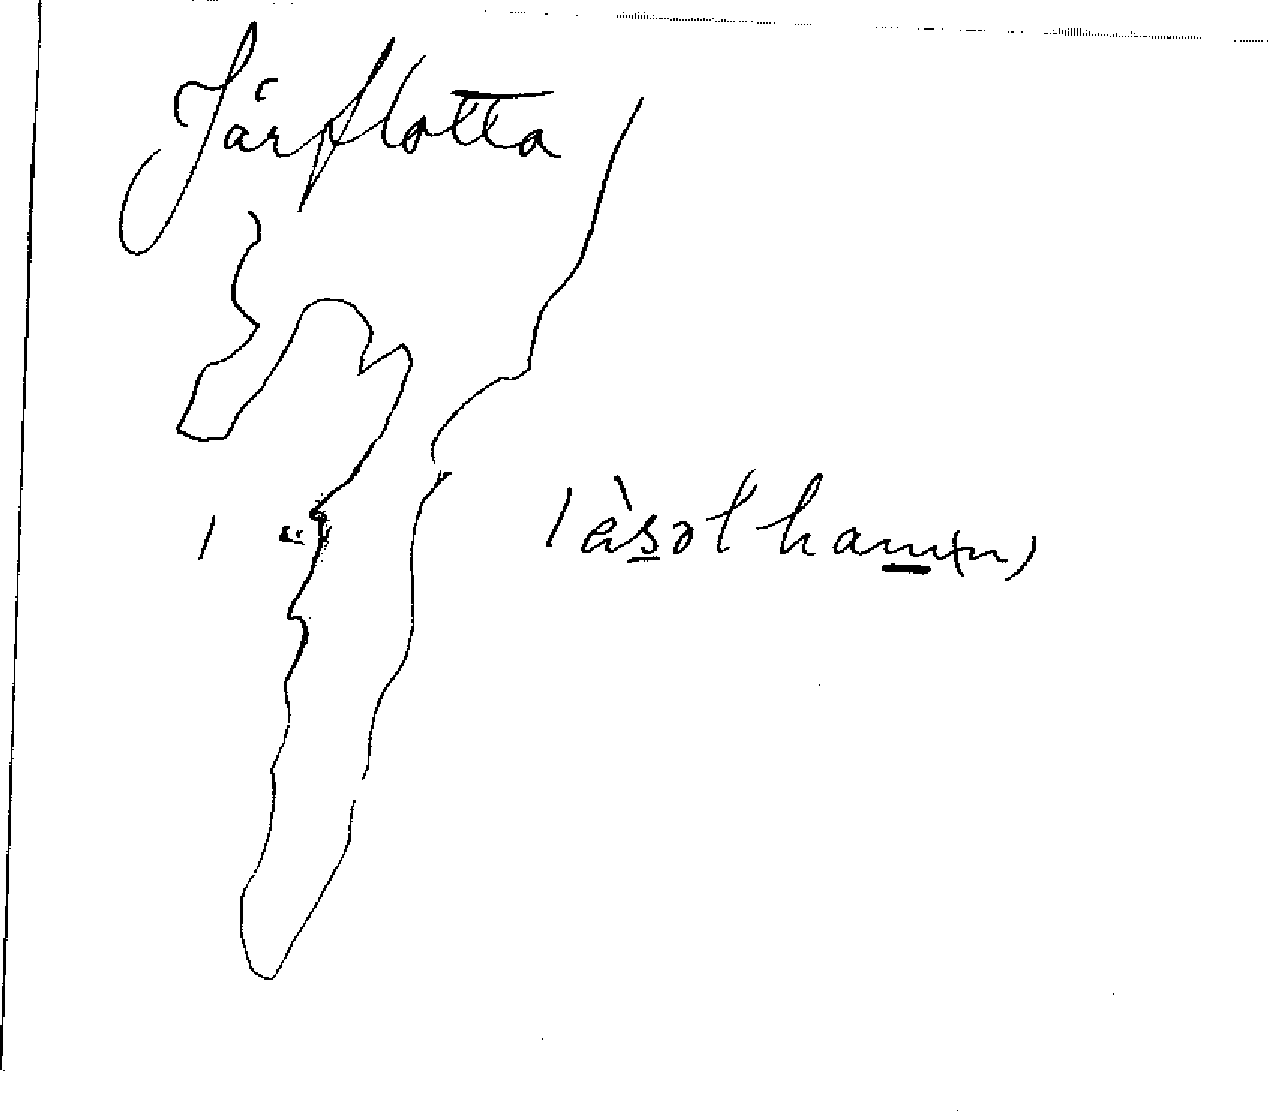 Järflotta
1
1 às̲əl ham(n)